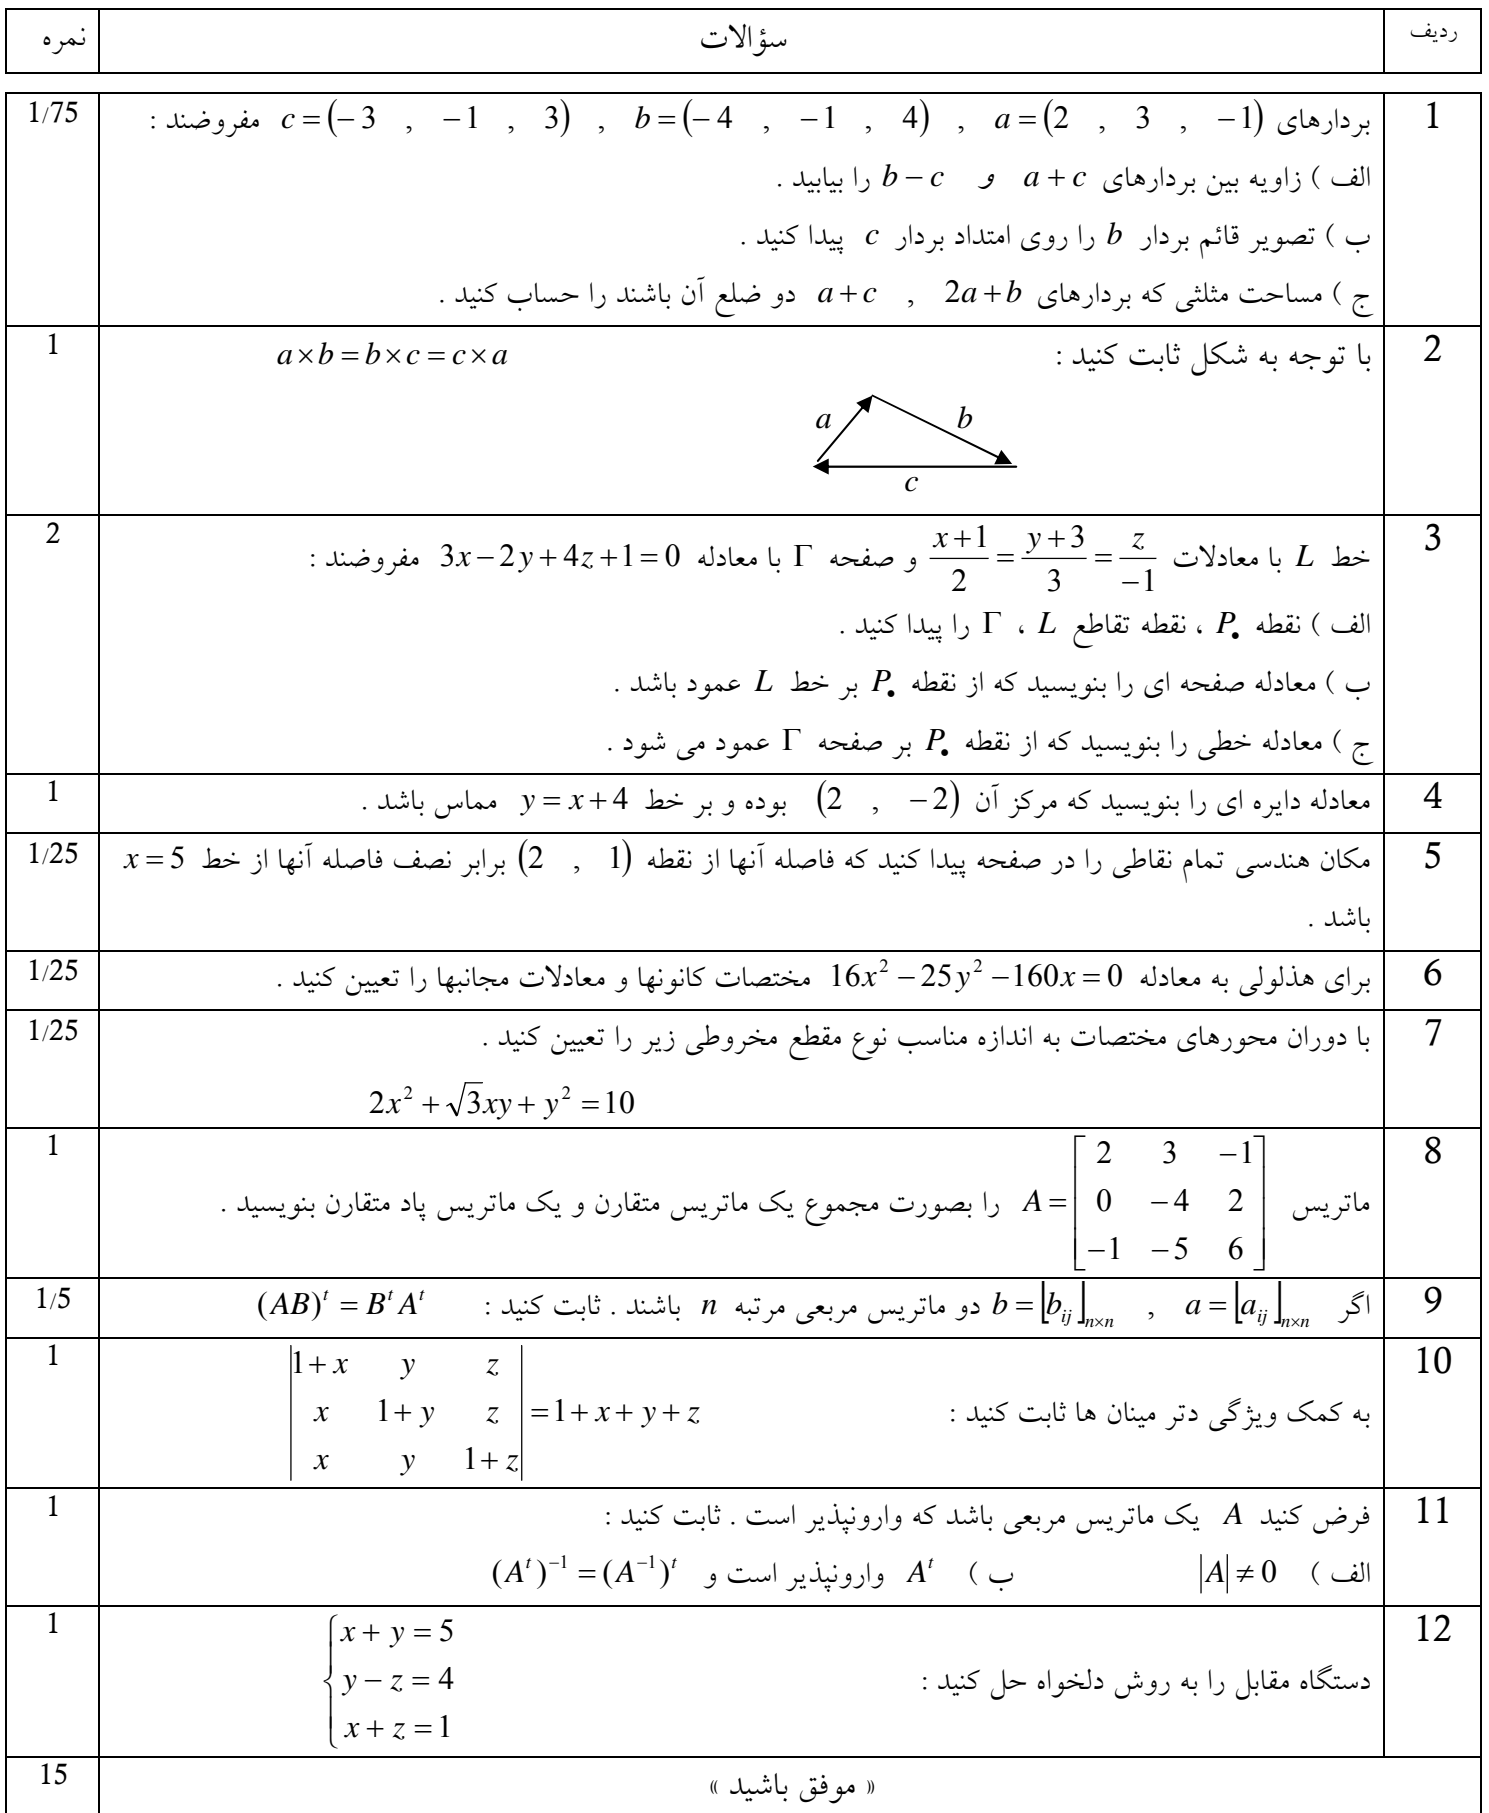 ردیف سؤالات نمره
1 بردارهای a = (2 , 3 , −1) , b = (−4 , −1 , 4) , c = (−3 , −1 , 3) مفروضند : 1/75
الف ) زاویه بین بردارهای a + c و b − c را بیابید .
ب ) تصویر قائم بردار b را روی امتداد بردار c پیدا کنید .
ج ) مساحت مثلثی که بردارهای 2a + b , a + c دو ضلع آن باشند را حساب کنید .
2 با توجه به شکل ثابت کنید : a × b = b × c = c × a 1
a b
c
3 خط L با معادلات \frac{x+1}{2} = \frac{y+3}{3} = \frac{z}{-1} و صفحه Γ با معادله 3x − 2y + 4z + 1 = 0 مفروضند : 2
الف ) نقطه P• ، نقطه تقاطع L ، Γ را پیدا کنید .
ب ) معادله صفحه ای را بنویسید که از نقطه P• بر خط L عمود باشد .
ج ) معادله خطی را بنویسید که از نقطه P• بر صفحه Γ عمود می شود .
4 معادله دایره ای را بنویسید که مرکز آن (2 , −2) بوده و بر خط y = x + 4 مماس باشد . 1
5 مکان هندسی تمام نقاطی را در صفحه پیدا کنید که فاصله آنها از نقطه (2 , 1) برابر نصف فاصله آنها از خط x = 5 1/25
باشد .
6 برای هذلولی به معادله 16x² − 25y² − 160x = 0 مختصات کانونها و معادلات مجانبها را تعیین کنید . 1/25
7 با دوران محورهای مختصات به اندازه مناسب نوع مقطع مخروطی زیر را تعیین کنید . 1/25
2x² + √3xy + y² = 10
8 ماتریس A = \begin{bmatrix} 2 & 3 & -1 \\ 0 & -4 & 2 \\ -1 & -5 & 6 \end{bmatrix} را بصورت مجموع یک ماتریس متقارن و یک ماتریس پاد متقارن بنویسید . 1
9 اگر a = [a_{ij}]_{n×n} , b = [b_{ij}]_{n×n} دو ماتریس مربعی مرتبه n باشند . ثابت کنید : (AB)^t = B^t A^t 1/5
10 به کمک ویژگی دتر مینان ها ثابت کنید : \begin{vmatrix} 1+x & y & z \\ x & 1+y & z \\ x & y & 1+z \end{vmatrix} = 1 + x + y + z 1
11 فرض کنید A یک ماتریس مربعی باشد که وارونپذیر است . ثابت کنید : 1
الف ) |A| ≠ 0 ب ) A^t وارونپذیر است و (A^t)^{-1} = (A^{-1})^t
12 دستگاه مقابل را به روش دلخواه حل کنید : \begin{cases} x + y = 5 \\ y − z = 4 \\ x + z = 1 \end{cases} 1
« موفق باشید » 15